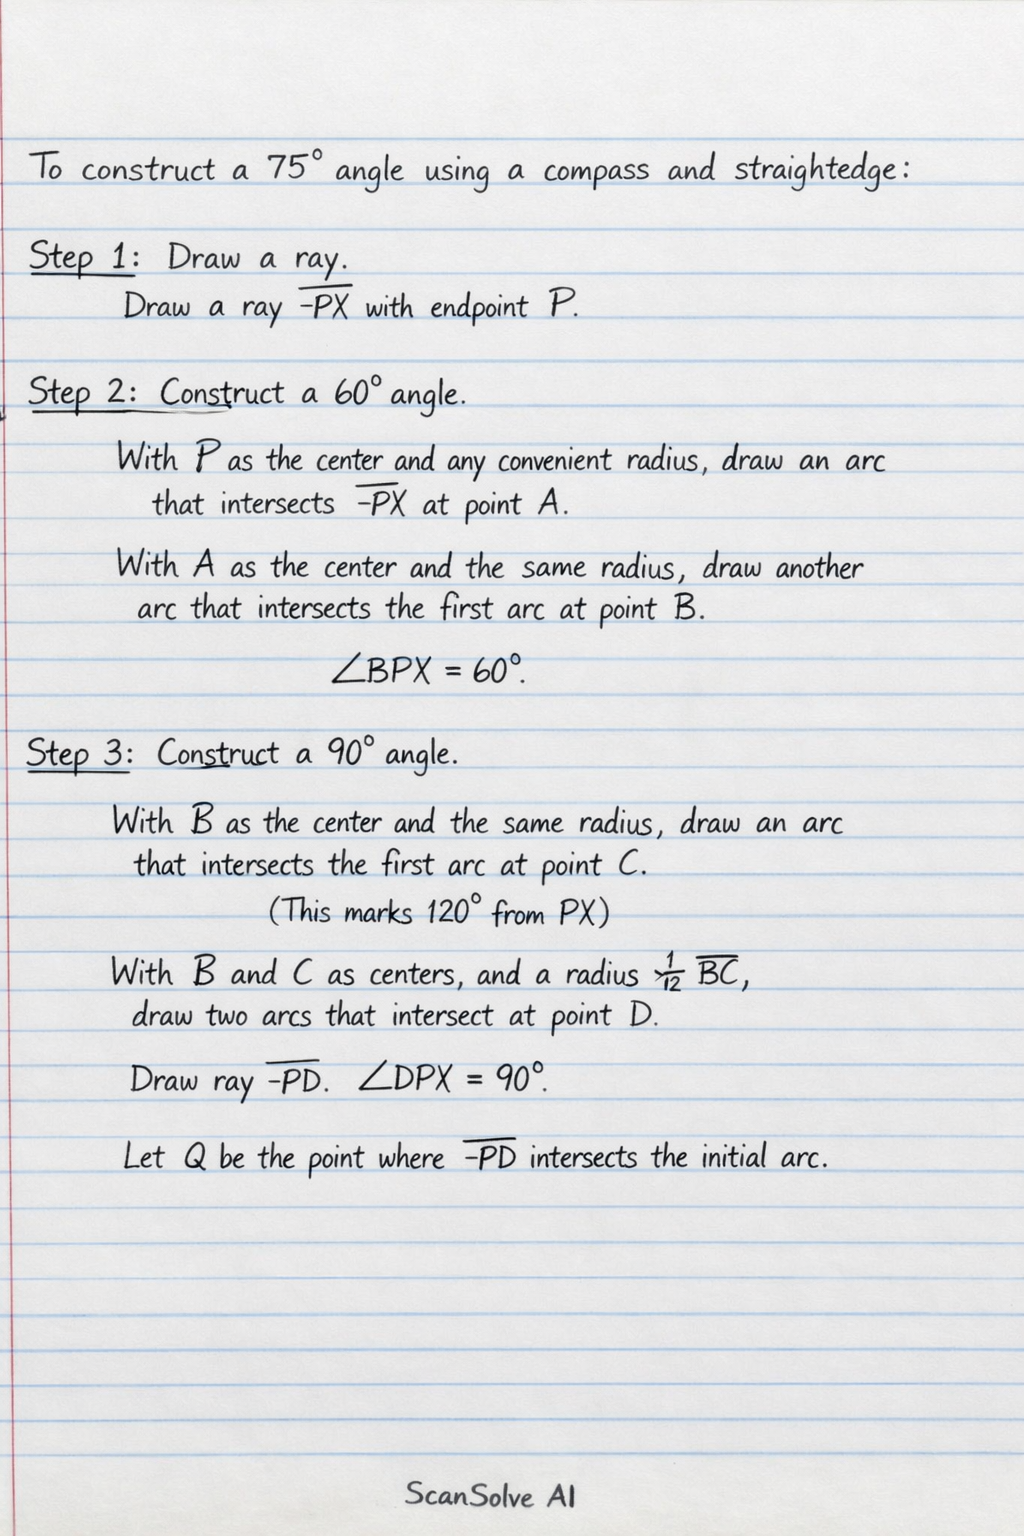 To construct a 75° angle using a compass and straightedge:
Step 1: Draw a ray.
Draw a ray -PX with endpoint P.
Step 2: Construct a 60° angle.
With P as the center and any convenient radius, draw an arc
that intersects -PX at point A.
With A as the center and the same radius, draw another
arc that intersects the first arc at point B.
∠BPX = 60°.
Step 3: Construct a 90° angle.
With B as the center and the same radius, draw an arc
that intersects the first arc at point C.
(This marks 120° from PX)
With B and C as centers, and a radius > 1/12 BC,
draw two arcs that intersect at point D.
Draw ray -PD. ∠DPX = 90°.
Let Q be the point where -PD intersects the initial arc.
ScanSolve AI